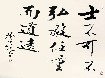 士不可不
弘毅任重
而道遠